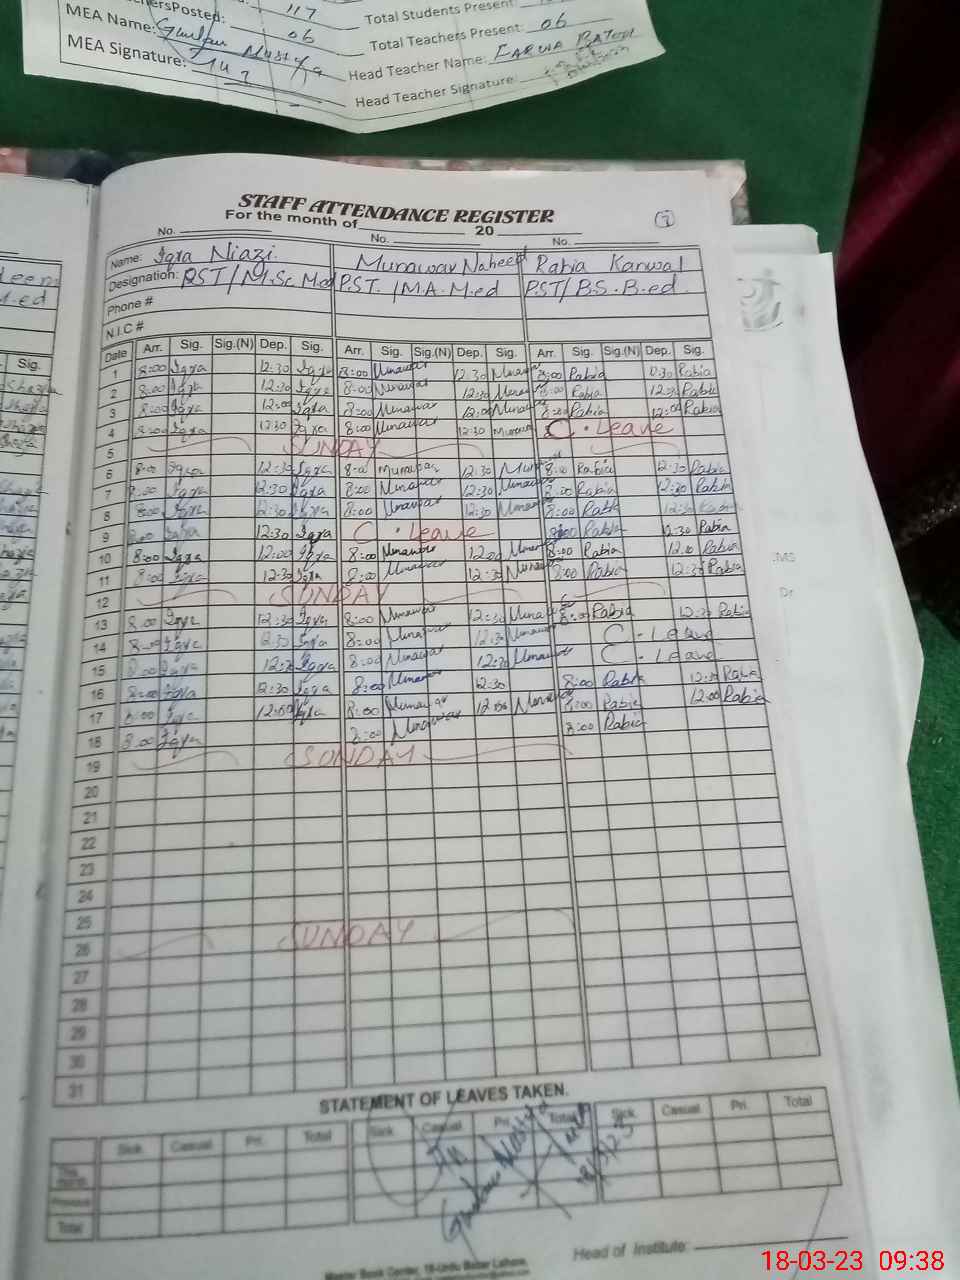 117
Total Students Present
MEA Name:
06
Total Teachers Present: 06
MEA Signature:
Head Teacher Name:
Head Teacher Signature:
STAFF ATTENDANCE REGISTER
For the month of 20
No. No. No.
Name: Iqra Niazi. Munawar Naheed Rabia Kanwal
Designation: PST/M.Sc M.ed P.ST. /M.A. M.ed P.ST/B.S. B.ed.
Phone #
N.I.C #
Date Arr. Sig. Sig.(N) Dep. Sig. Arr. Sig. Sig.(N) Dep. Sig. Arr. Sig. Sig.(N) Dep. Sig.
1 8:00 Iqra 12:30 Iqra 8:00 Munawar 12:30 Munawar 8:00 Rabia 12:30 Rabia
2 8:00 Iqra 12:30 Iqra 8:00 Munawar 12:30 Munawar 8:00 Rabia 12:30 Rabia
3 8:00 Iqra 12:00 Iqra 8:00 Munawar 12:00 Munawar 8:00 Rabia 12:00 Rabia
4 8:00 Iqra 12:30 Iqra 8:00 Munawar 12:30 Munawar C. Leave
5 SUNDAY
6 8:00 Iqra 12:30 Iqra 8:00 Munawar 12:30 Munawar 8:00 Rabia 12:30 Rabia
7 8:00 Iqra 12:30 Iqra 8:00 Munawar 12:30 Munawar 8:00 Rabia 12:30 Rabia
8 8:00 Iqra 12:30 Iqra 8:00 Munawar 12:30 Munawar 8:00 Rabia 12:30 Rabia
9 8:00 Iqra 12:30 Iqra C. Leave 8:00 Rabia 12:30 Rabia
10 8:00 Iqra 12:00 Iqra 8:00 Munawar 12:00 Munawar 8:00 Rabia 12:00 Rabia
11 8:00 Iqra 12:30 Iqra 8:00 Munawar 12:30 Munawar 8:00 Rabia 12:30 Rabia
12 SUNDAY
13 8:00 Iqra 12:30 Iqra 8:00 Munawar 12:30 Munawar 8:00 Rabia 12:30 Rabia
14 8:00 Iqra 12:30 Iqra 8:00 Munawar 12:30 Munawar C. Leave
15 8:00 Iqra 12:30 Iqra 8:00 Munawar 12:30 Munawar C. Leave
16 8:00 Iqra 12:30 Iqra 8:00 Munawar 12:30 8:00 Rabia 12:30 Rabia
17 8:00 Iqra 12:00 Iqra 8:00 Munawar 12:00 Munawar 8:00 Rabia 12:00 Rabia
18 8:00 Iqra 8:00 Munawar 8:00 Rabia
19 SUNDAY
20
21
22
23
24
25
26 SUNDAY
27
28
29
30
31
STATEMENT OF LEAVES TAKEN.
Sick Casual Pri. Total Sick Casual Pri. Total Sick Casual Pri. Total
This month
Previous
Total
Head of Institute:
Master Book Center, 18-Urdu Bazar Lahore.
18-03-23 09:38